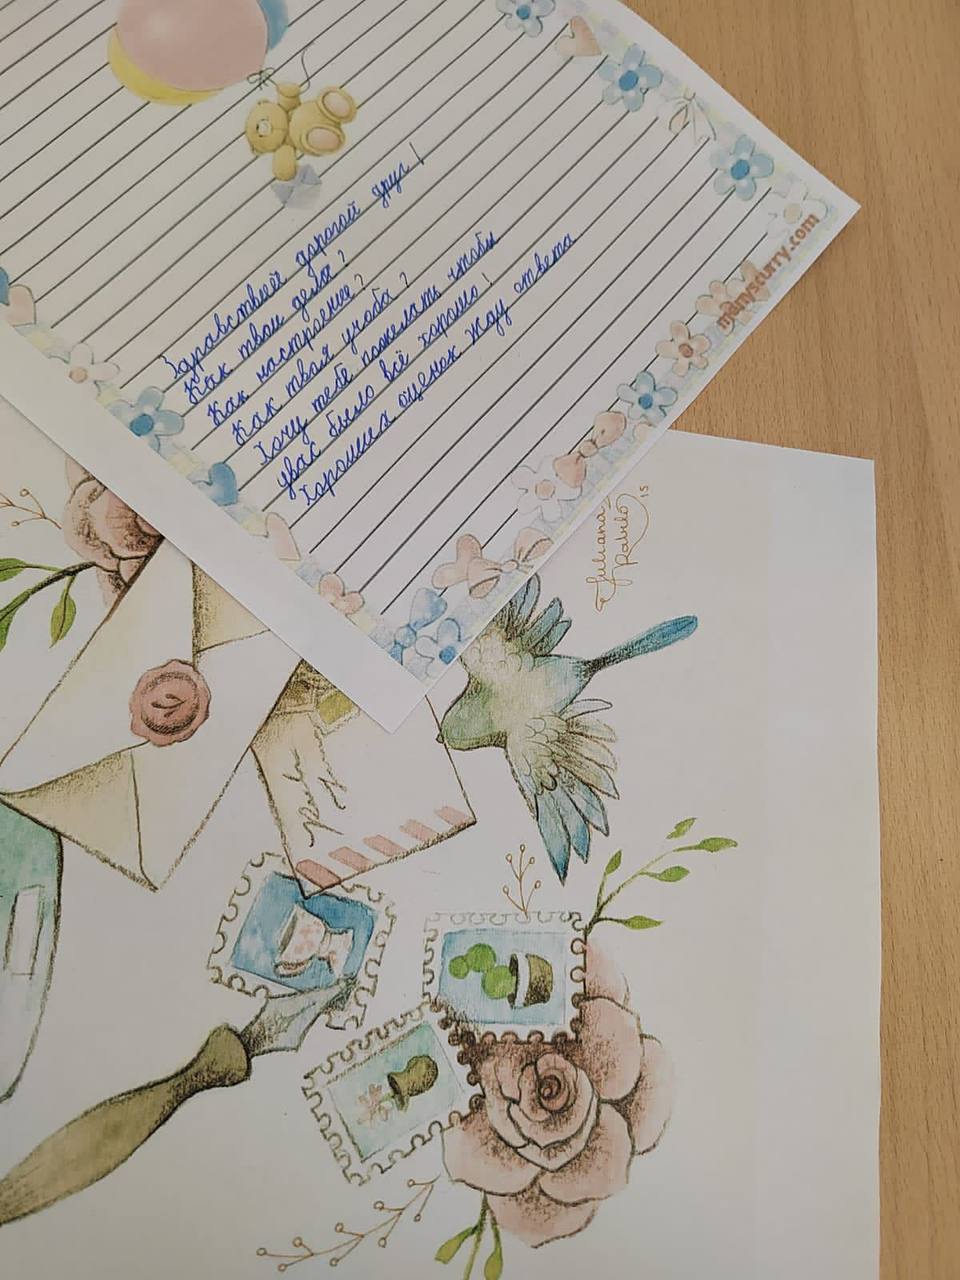 Здравствуй дорогой друг!
Как твои дела?
Как настроение?
Как твоя учоба?
Хочу тебе пожелать чтобы
у вас было всё хорошо!
Хороших оценок жду ответа
manyscurry.com
Juliana
Rabelo
15